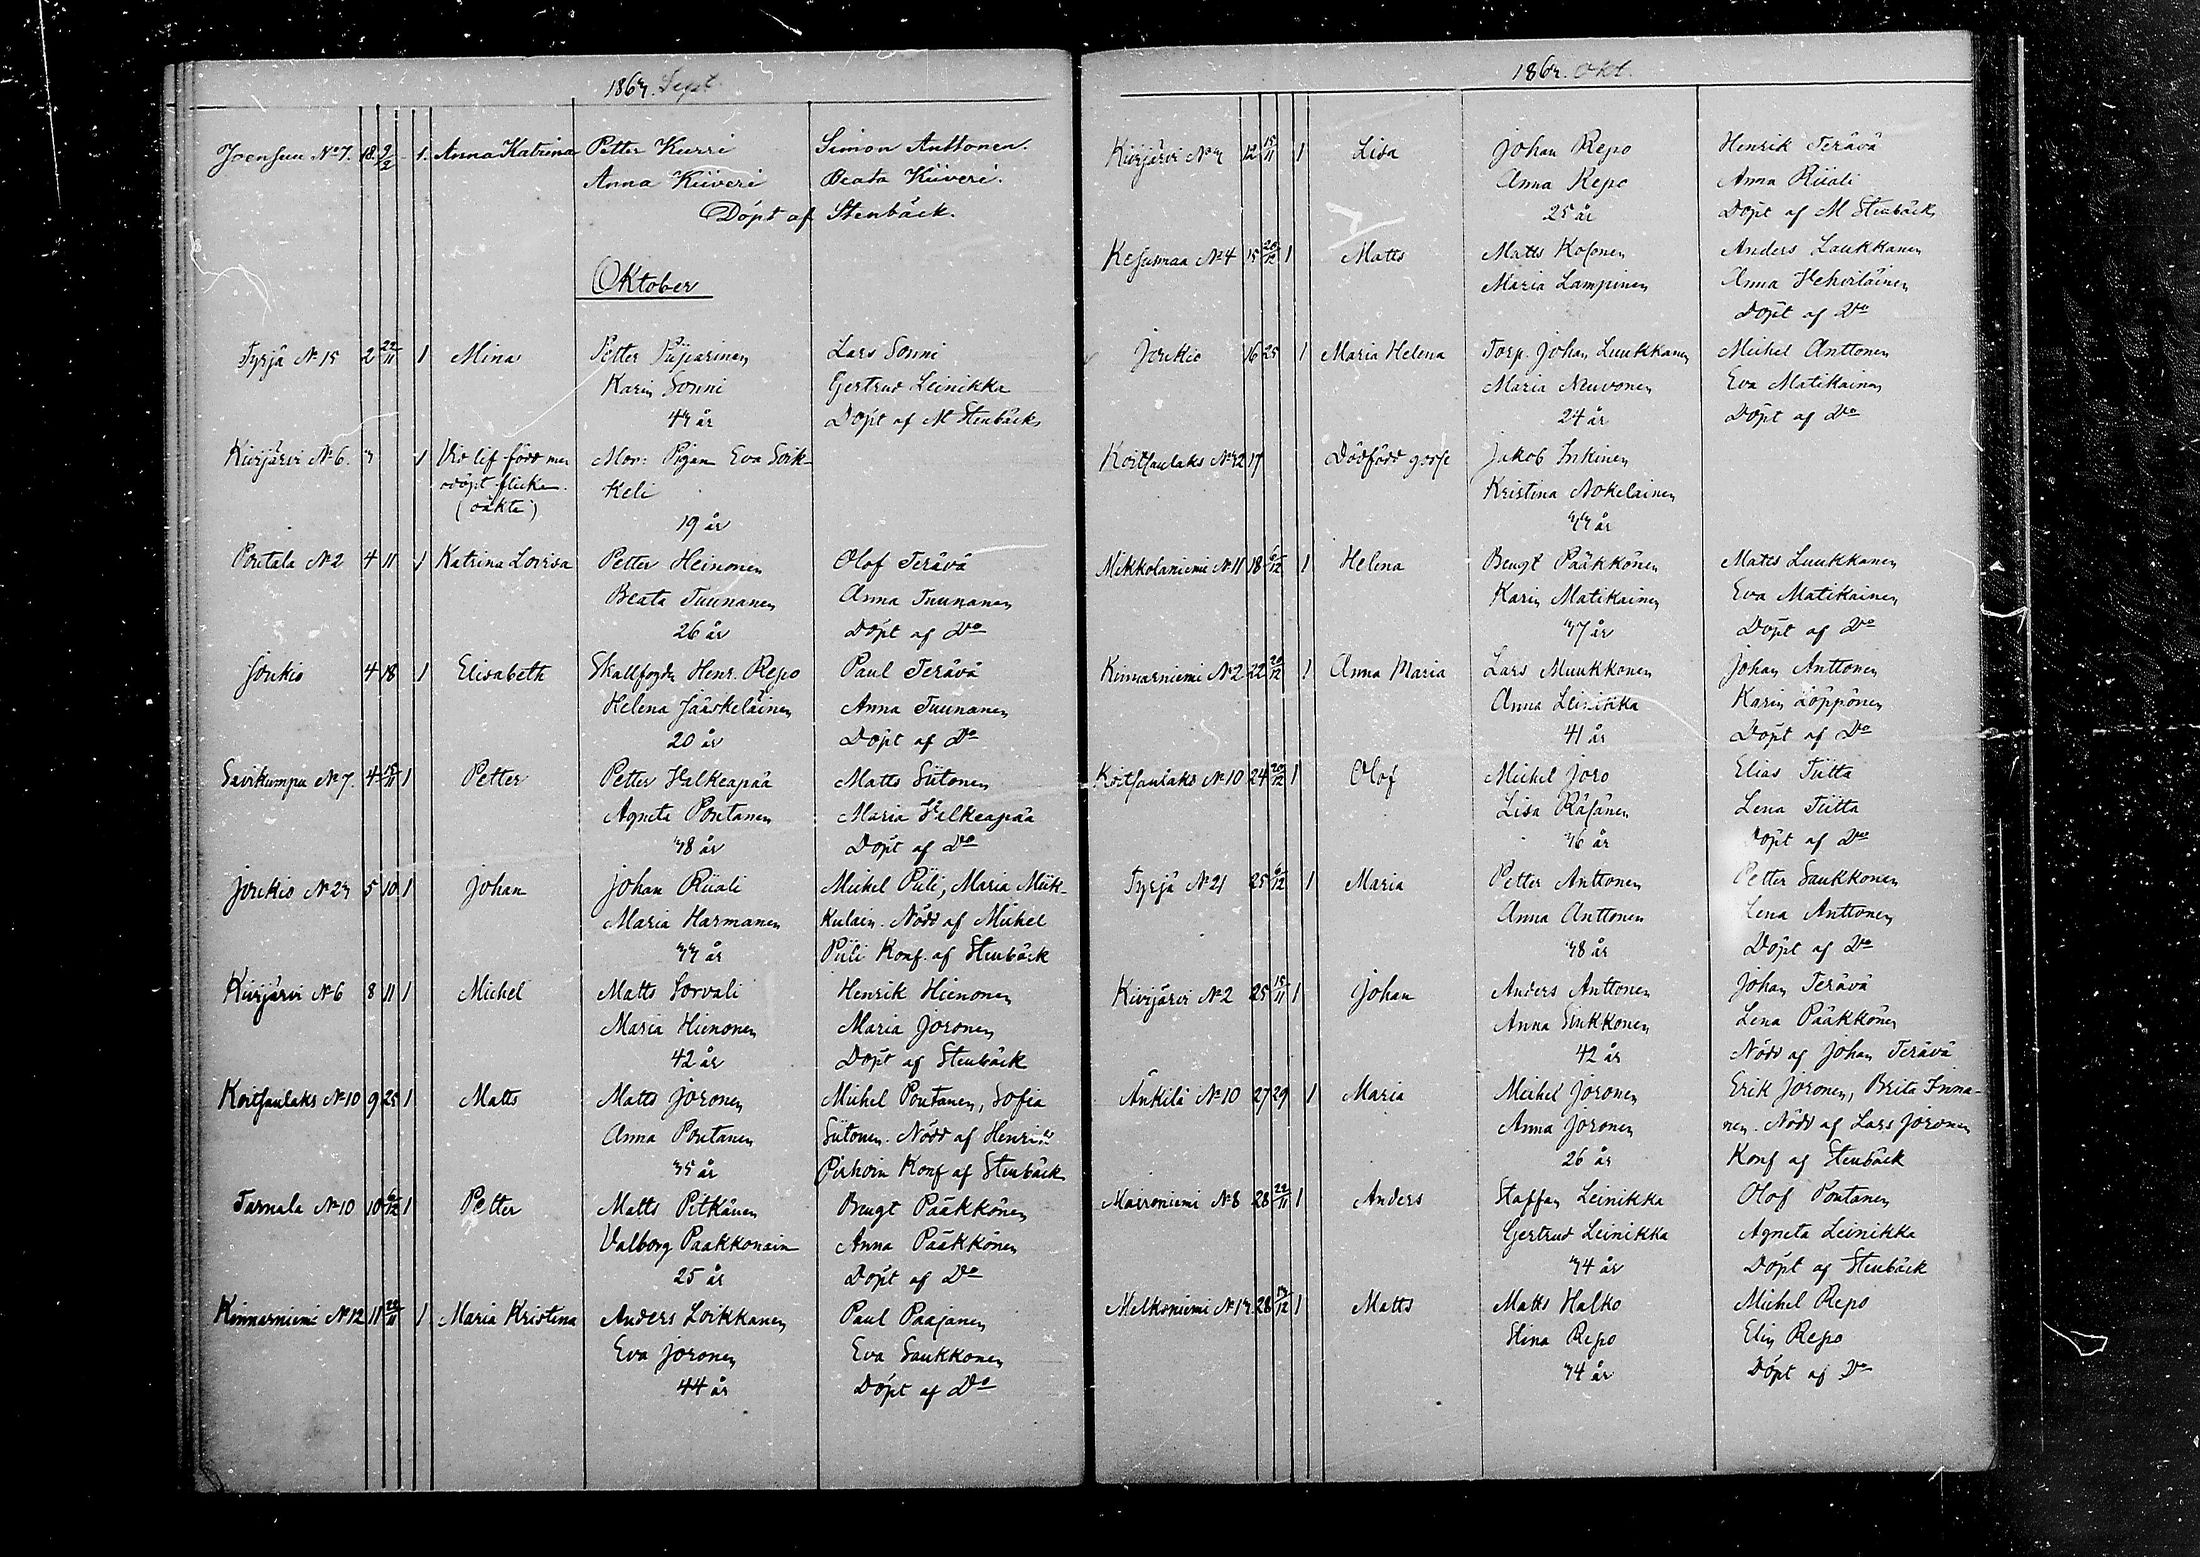 1863. Sept.
Joensuu No 7. 18. 9/2 1. Anna Katrina Petter Kurri Simon Anttonen.
Anna Kiiveri Beata Kiiveri.
Döpt af Stenbäck.
Oktober
Tyrjä No 15 2 22/11 1 Mina Petter Pujarinen Lars Sonni
Karin Sonni Gertrud Leinikka
43 år Döpt af M Stenbäck
Kivijärvi No 6. 3 1 Vid lif född men Mor: Pigan Eva Soik-
odöpt flicka keli
(oäkta)
19 år
Poutala No 2 4 11 1 Katrina Lovisa Petter Heinonen Olof Terävä
Beata Tuunanen Anna Tuunanen
26 år Döpt af Do
Joukio 4 18 1 Elisabeth Skallfogde Henr. Repo Paul Terävä
Helena Jääskeläinen Anna Tuunanen
20 år Döpt af Do
Savikumpu No 7. 4 15/11 1 Petter Petter Valkeapää Matts Siitonen
Agneta Poutanen Maria Valkeapää
38 år Döpt af Do
Joukio No 23 5 10 1 Johan Johan Riiali Michel Piili, Maria Mik-
Maria Harmanen kulain. Nödd af Michel
33 år Piili Konf. af Stenbäck
Kivijärvi No 6 8 11 1 Michel Matts Sorvali Henrik Hienonen
Maria Hienonen Maria Joronen
42 år Döpt af Stenbäck
Koitsanlaks No 10 9 25 1 Matts Matts Joronen Michel Poutanen, Sofia
Anna Poutanen Siitonen. Nödd af Henrik
35 år Pirhoin Konf af Stenbäck
Tarnala No 10 10 6/12 1 Petter Matts Pitkänen Bengt Pääkkönen
Valborg Paakkonain Anna Pääkkönen
25 år Döpt af Do
Kinnarniemi No 12 11 22/11 1 Maria Kristina Anders Loikkanen Paul Paajanen
Eva Joronen Eva Saukkonen
44 år Döpt af Do
1863. Okt.
Kivijärvi No 3 12 15/11 1 Lisa Johan Repo Henrik Terävä
Anna Repo Anna Riiali
25 år Döpt af M Stenbäck
Kesusmaa No 4 15 20/12 1 Matts Matts Kosonen Anders Laukkanen
Maria Lampinen Anna Vehviläinen
Döpt af Do
Joukio 16 25 1 Maria Helena Torp. Johan Luukkanen Michel Anttonen
Maria Nuvonen Eva Matikainen
24 år Döpt af Do
Koitsanlaks No 32 17 Dödfödd gosse Jakob Inkinen
Kristina Nokelainen
33 år
Mikkolaniemi No 11 18 6/12 1 Helena Bengt Pääkkönen Matts Luukkanen
Karin Matikainen Eva Matikainen
37 år Döpt af Do
Kinnarniemi No 2 22 20/12 1 Anna Maria Lars Muukkonen Johan Anttonen
Anna Leinikka Karin Löppönen
41 år Döpt af Do
Koitsanlaks No 10 24 20/12 1 Olof Michel Joro Elias Tiitta
Lisa Räsänen Lena Tiitta
36 år Döpt af Do
Tyrjä No 21 25 6/12 1 Maria Petter Anttonen Petter Saukkonen
Anna Anttonen Lena Anttonen
38 år Döpt af Do
Kivijärvi No 2 25 15/11 1 Johan Anders Anttonen Johan Terävä
Anna Sinkkonen Lena Pääkkönen
42 år Nödd af Johan Terävä
Änkilä No 10 27 29 1 Maria Michel Joronen Erik Joronen, Brita Inna-
Anna Joronen nen. Nödd af Lars Joronen
26 år Konf af Stenbäck
Moironiemi No 8 28 22/11 1 Anders Staffan Leinikka Olof Poutanen
Gertrud Leinikka Agneta Leinikka
34 år Döpt af Stenbäck
Melkoniemi No 13. 28 13/12 1 Matts Matts Halko Michel Repo
Stina Repo Elin Repo
34 år Döpt af Do